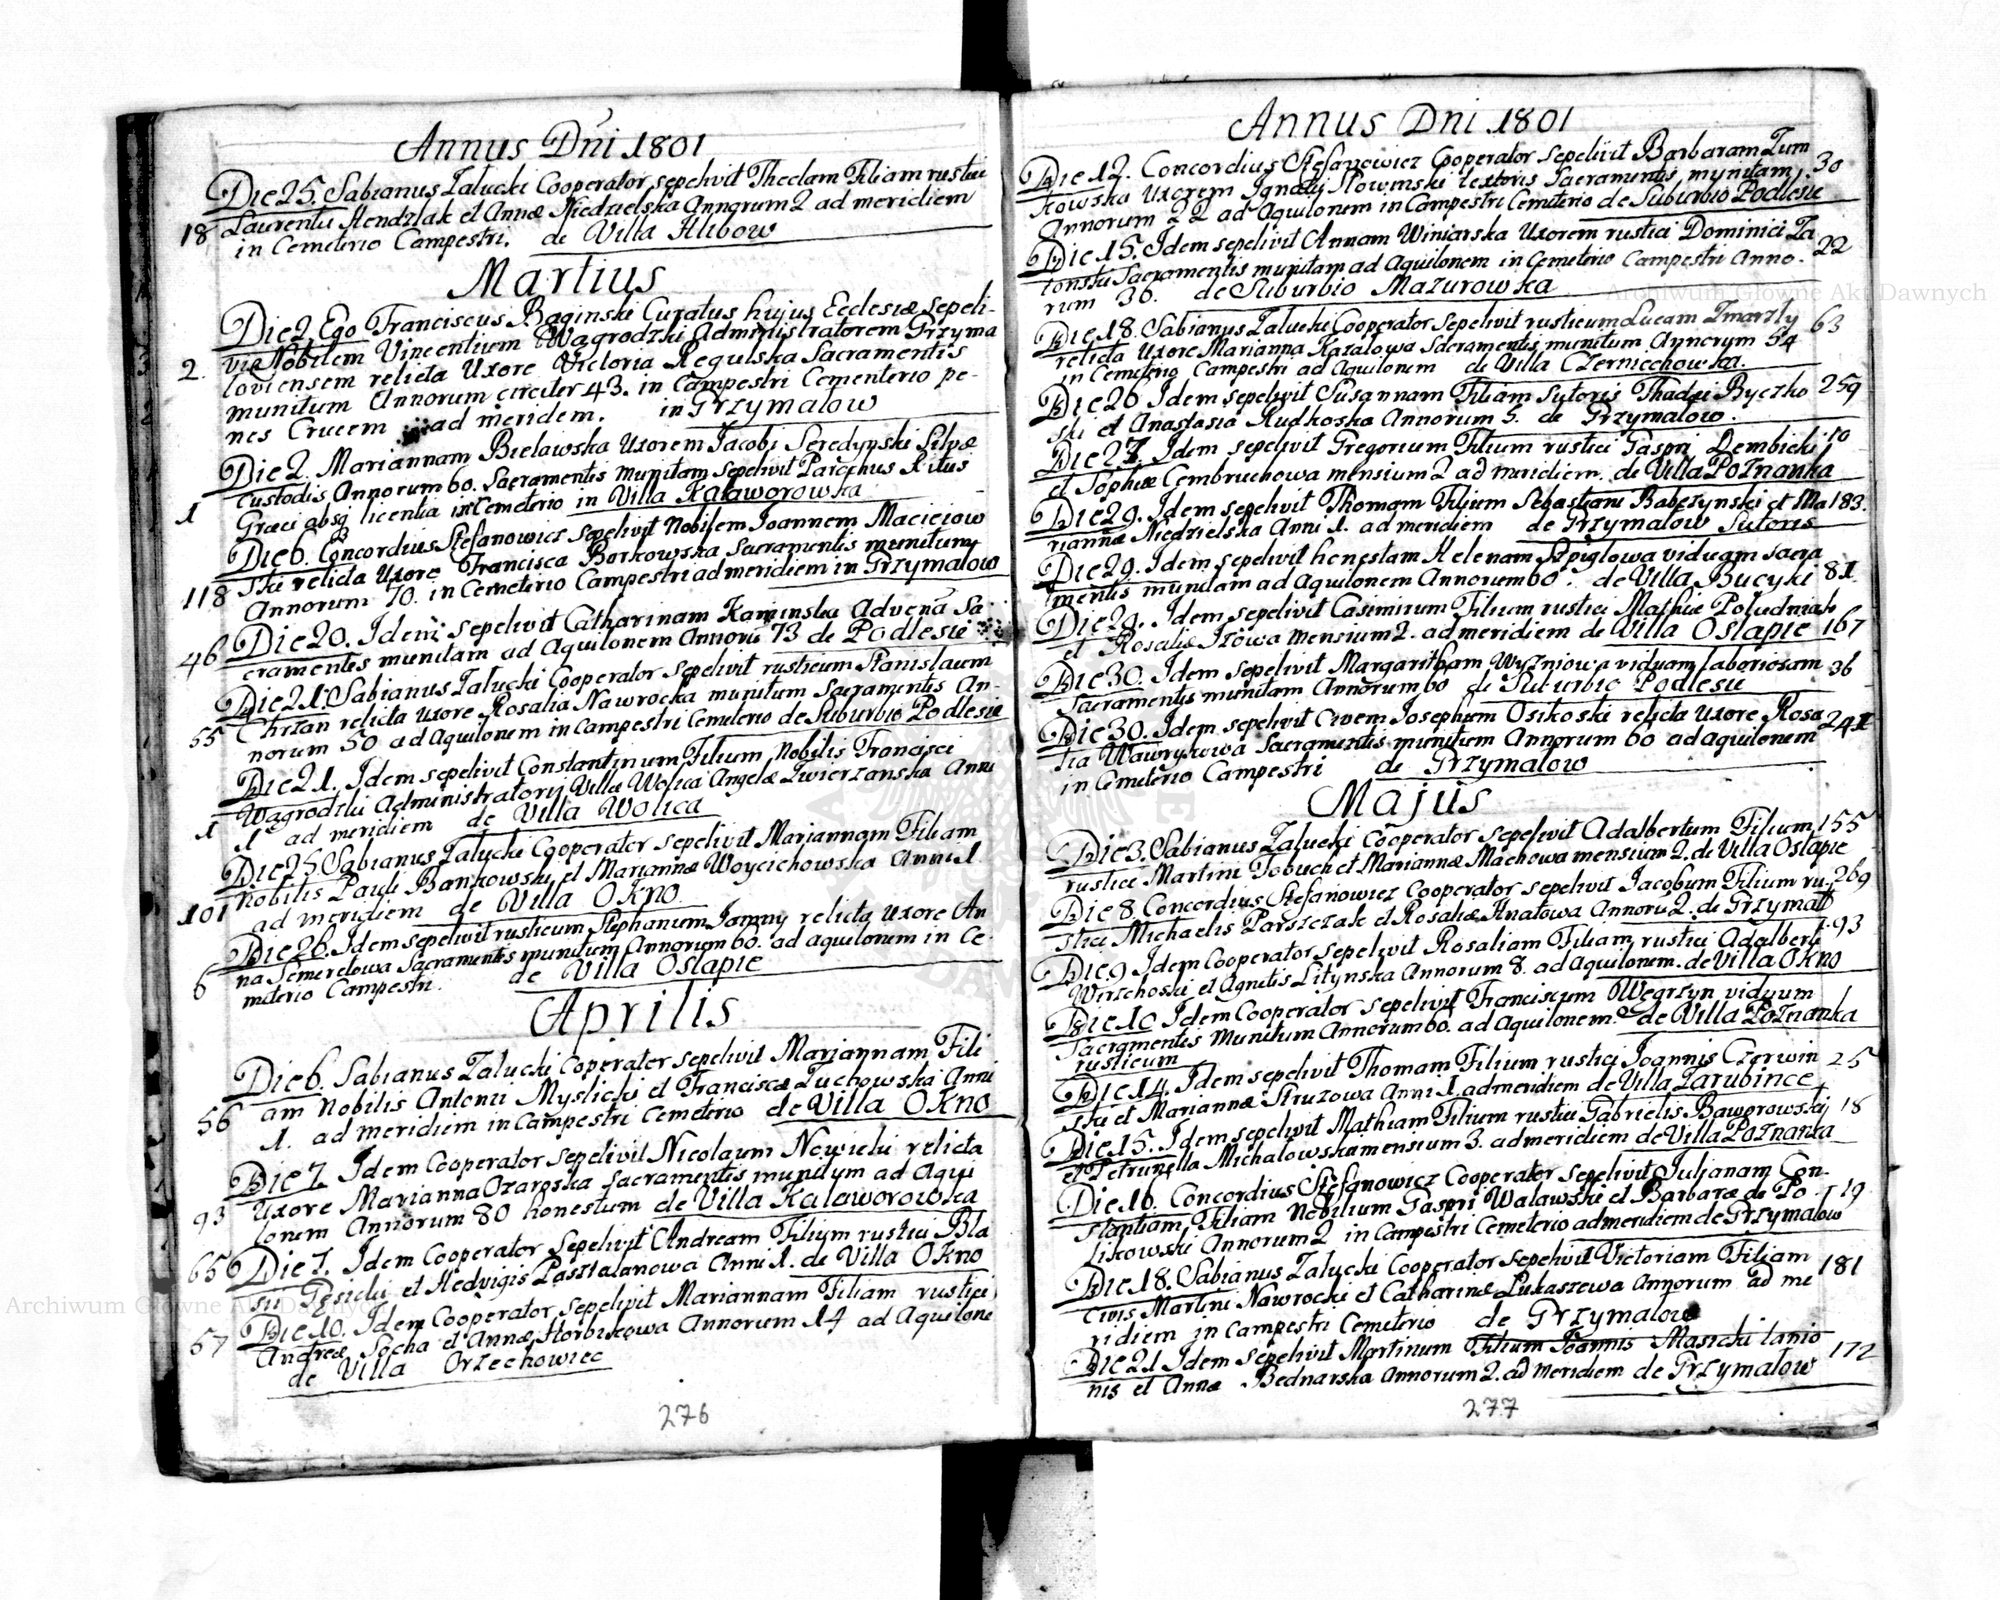 Annus Dni 1801
Die 25. Sabianus Zalucki Cooperator sepelivit Theclam Filiam rustici
18 Laurentii Hendzlak et Annæ Niedzielska Annorum 2 ad meridiem
in Cemeterio Campestri. de Villa Hlibow
Martius
Die 2 Ego Franciscus Baginski Curatus hujus Ecclesiæ sepeli-
vit Nobilem Vincentium Wagrodzki Administratorem Grzyma
2. loviensem relicta Uxore Victoria Regulska Sacramentis
munitum Annorum circiter 43. in Campestri Cementerio pe-
nes Crucem ad meridem. in Grzymalow
Die 2. Mariannam Bielawska Uxorem Jacobi Seredynski Silvæ
custodis Annorum 60. Sacramentis munitam sepelivit Parochus Ritus
1 Græci absq licentia in Cemeterio in Villa Kalaworowka
Die 6. Concordius Stefanowicz sepelivit Nobilem Joannem Maciejow
118 ski relicta Uxore Francisca Borkowska Sacramentis munitum
Annorum 70. in Cemeterio Campestri ad meridiem in Grzymalow
Die 20. Idem sepelivit Catharinam Kaminska Advena Sa-
46 cramentis munitam ad Aquilonem Annoru 73 de Podlesie
Die 21. Sabianus Zalucki Cooperator sepelivit rusticum Stanislaum
Chrzan relicta uxore Rosalia Nawrocka munitum Sacramentis An-
55 norum 50 ad Aquilonem in Campestri Cemeterio de Suburbio Podlesie
Die 21. Idem sepelivit Constantinum Filium Nobilis Francisci
Wagrodzki Administratorij Villæ Wolica Angelæ Zwierzanska Anni
1 1 ad meridiem de Villa Wolica
Die 25 Sabianus Zalucki Cooperator sepelivit Mariannam Filiam
Nobilis Pauli Bankowski et Mariannæ Woycichowska Anni 1.
101 ad meridiem de Villa Okno.
Die 26. Idem sepelivit rusticum Stephanum Jamny relicta Uxore An
na Semeretowa Sacramentis munitum Annorum 60. ad aquilonem in Ce-
6 meterio Campestri. de Villa Oslapie
Aprilis
Die 6. Sabianus Zalucki Coperator sepelivit Mariannam Fili
am Nobilis Antonii Myslicki et Franciscæ Zuchowska Anni
56 1. ad meridiem in Campestri Cemeterio de Villa Okno
Die 7. Idem Cooperator sepelivit Nicolaum Nowicki relicta
Uxore Marianna Ozaroska Sacramentis munitum ad Aqui
93 lonem Annorum 80 honestum de Villa Kalaworowka
65 Die 7. Idem Cooperator sepelivit Andream Filium rustici Bla
sii et Hedvigis Anni 1. de Villa Okno
Die 10. Idem Cooperator sepelivit Mariannam Filiam rustici
57 Andreæ Socha et Annæ Horbikowa Annorum 14 ad Aquilone
de Villa Orzechowiec
276
Annus Dni 1801
Die 12. Concordius Stefanowicz Cooperator sepelivit Barbaram Zum 30
kowska Uxorem Ignatij Slowinski textoris Sacramentis munitam,
Annorum 22 ad Aquilonem in Campestri Cemeterio de Suburbio Podlesie
Die 15. Idem sepelivit Annam Winiarska Uxorem rustici Dominici Za 22
Sacramentis munitam ad Aquilonem in Cemeterio Campestri Anno-
rum 36. de Suburbio Mazurowka
Die 18. Sabianus Zalucki Cooperator sepelivit rusticum Lucam Zmarzly 63
relicta Uxore Marianna Kazalowa Sacramentis munitum Annorum 54
in Cemeterio Campestri ad Aquilonem de Villa Czerniechowka.
Die 26 Idem sepelivit Susannam Filiam Sutoris Thadæi Byczko 259
ski et Anastasia Rudkoska Annorum 5. de Grzymalow.
Die 27. Idem sepelivit Gregorium Filium rustici Gaspri Lembicki 10
et Sophiæ Cembruchowa mensium 2 ad meridiem. de Villa Poznanka
Die 29. Idem sepelivit Thomam Filium Sebastiani Babczynski et Ma 183.
riannæ Niedzielska Anni 1. ad meridiem de Grzymalow Sutoris
Die 29. Idem sepelivit honestam Helenam Szpiglowa viduam sacra
mentis munitam ad Aquilonem Annorum 60. de Villa Bucyki 81.
Die 29. Idem sepelivit Casimirum Filium rustici Mathiæ Poludniak
et Rosaliæ Izowa Mensium 2. ad meridiem de Villa Oslapie 167
Die 30. Idem sepelivit Margaritham Wyzniowa viduam laboriosam 36
Sacramentis munitam Annorum 60 de Suburbio Podlesie
Die 30. Idem sepelivit Civem Josephum Osikoski relicta uxore Rosa 241
lia Wawrykowa Sacramentis munitum Annorum 60 ad aquilonem
in Cemeterio Campestri de Grzymalow
Majus
Die 3. Sabianus Zalucki Cooperator sepelivit Adalbertum Filium 155
rustici Martini Tobuch et Mariannæ Machowa mensium 2. de Villa Oslapie
Die 8. Concordius Stefanowicz Cooperator sepelivit Jacobum Filium ru- 269
stici Michaelis Parszczak et Rosaliæ Hnatowa Annoru 2. de Grzymal
Die 9 Idem Cooperator sepelivit Rosaliam Filiam rustici Adalberti 93
Wirzchoski et Agnetis Litynska Annorum 8. ad Aquilonem. de Villa Okno
Die 10 Idem Cooperator sepelivit Franciscum Wegrzyn viduum 1
Sacramentis munitum Annorum 60. ad Aquilonem. de Villa Poznanka
rusticum
Die 14. Idem sepelivit Thomam Filium rustici Joannis Czerwin 25
ski et Mariannæ Struzowa Anni 1. ad meridiem de Villa Zarubince
Die 15. Idem sepelivit Mathiam Filium rustici Gabrielis Baworowski 18
et Petrunella Michalowska mensium 3. ad meridiem de Villa Poznanka
Die 16. Concordius Stefanowicz Cooperator sepelivit Julianam Con-
stantiam Filiam Nobilium Gaspri Walawski et Barbaræ de Po 119
likowski Annorum 2 in Campestri Cemeterio ad meridiem de Grzymalow
Die 18. Sabianus Zalucki Cooperator sepelivit Victoriam Filiam
Civis Martini Nawrocki et Catharinæ Lukaszewa Annorum ad me 181
ridiem in Campestri Cemeterio de Grzymalow
Die 21 Idem sepelivit Martinum Filium Joannis Masicki lanio 172
nis et Annæ Bednarska Annorum 2. ad meridiem de Grzymalow
277
Archiwum Główne Akt Dawnych
Archiwum Główne Akt Dawnych